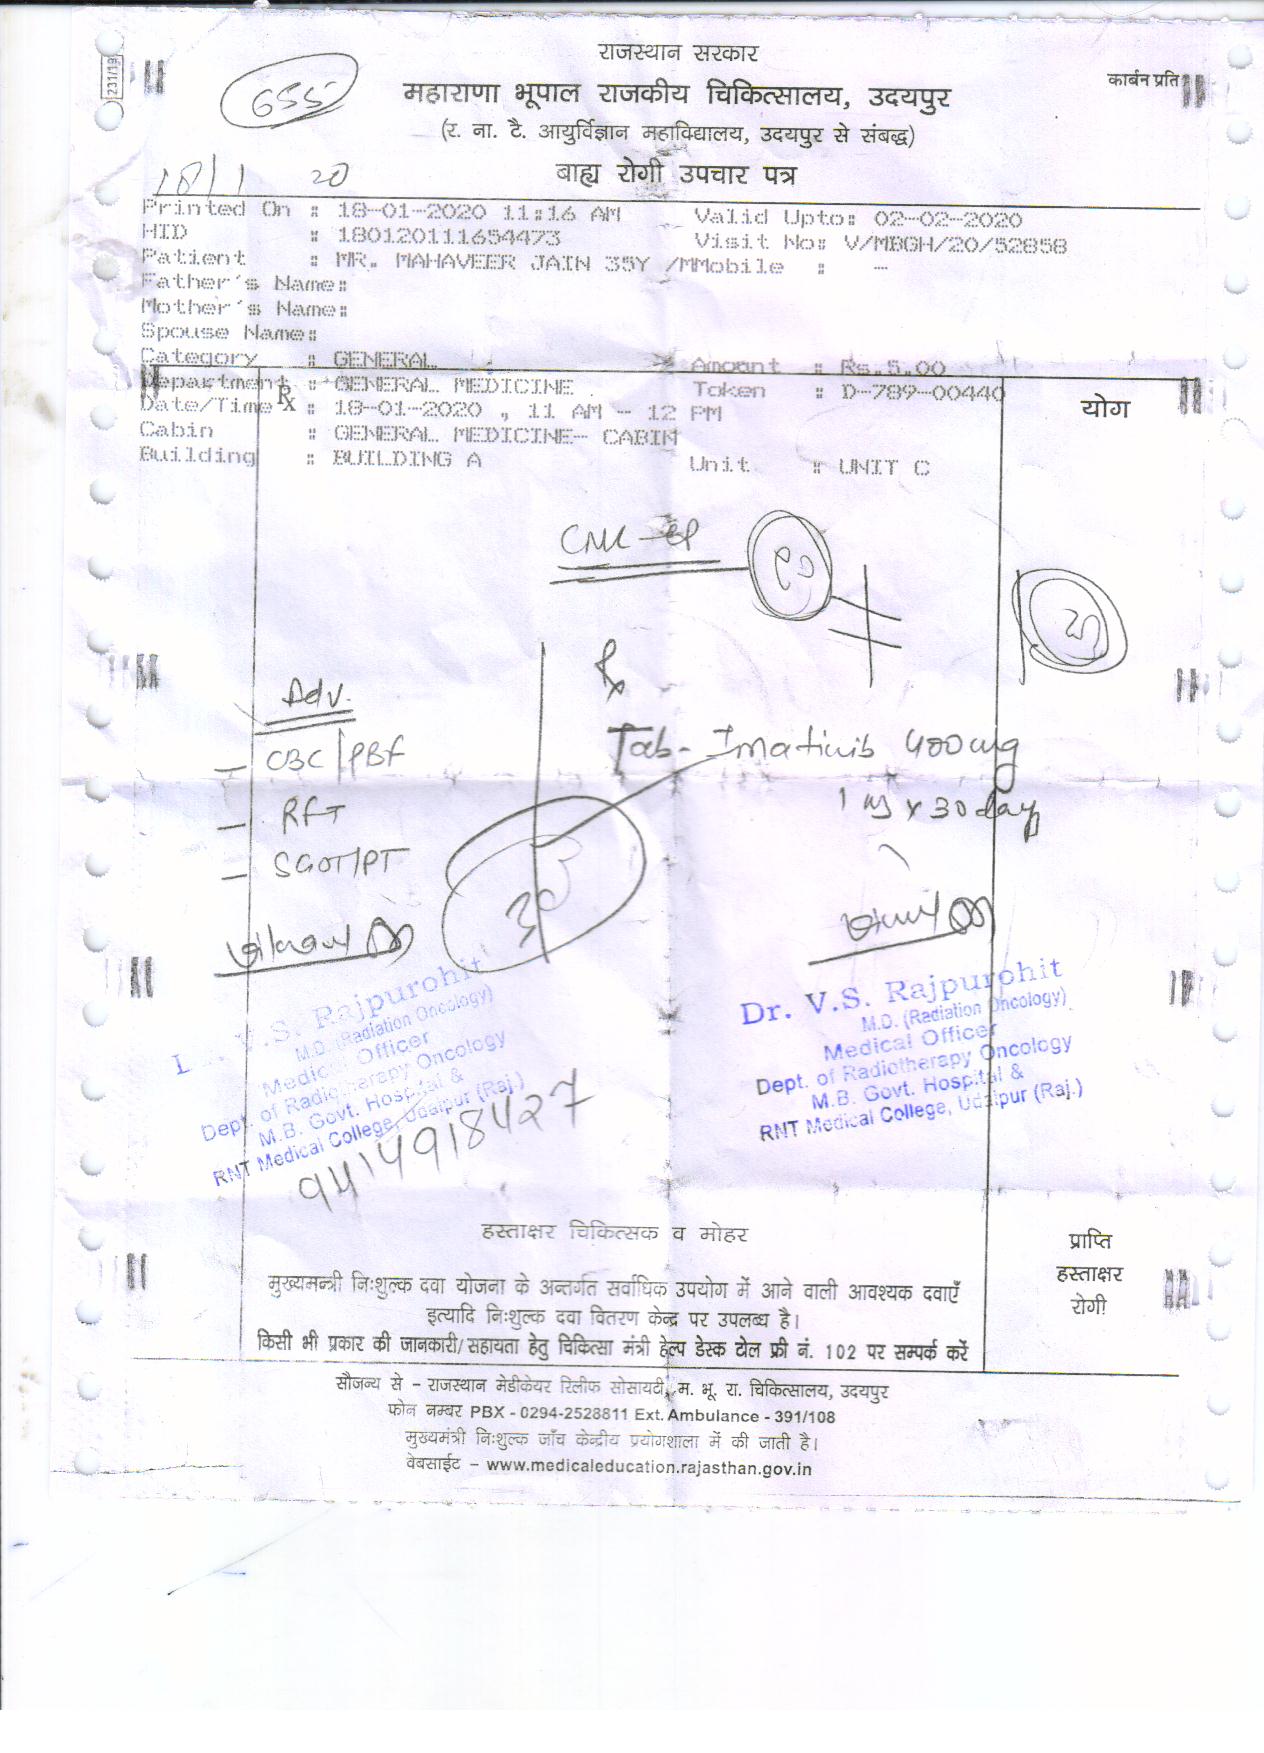 231/19
राजस्थान सरकार
कार्बन प्रति
655
महाराणा भूपाल राजकीय चिकित्सालय, उदयपुर
(र. ना. टै. आयुर्विज्ञान महाविद्यालय, उदयपुर से संबद्ध)
18/1 20
बाह्य रोगी उपचार पत्र
Printed On : 18-01-2020 11:16 AM Valid Upto: 02-02-2020
HID : 180120111654473 Visit No: V/MBGH/20/52858
Patient : MR. MAHAVEER JAIN 35Y /MMobile : -
Father's Name:
Mother's Name:
Spouse Name:
Category : GENERAL Amount : Rs.5.00
Department : GENERAL MEDICINE Token : D-789-00440
Rx
योग
Date/Time : 18-01-2020 , 11 AM - 12 PM
Cabin : GENERAL MEDICINE- CABIN
Building : BUILDING A Unit : UNIT C
CML - CP
Rx
Adv.
Tab- Imatinib 400mg
- CBC/PBF
- RFT
- SGOT/PT
x 30 day
30
V.S. Rajpurohit
M.D. (Radiation Oncology)
Medical Officer
Dept. of Radiotherapy Oncology
M.B. Govt. Hospital &
RNT Medical College, Udaipur (Raj.)
9414918427
Dr. V.S. Rajpurohit
M.D. (Radiation Oncology)
Medical Officer
Dept. of Radiotherapy Oncology
M.B. Govt. Hospital &
RNT Medical College, Udaipur (Raj.)
हस्ताक्षर चिकित्सक व मोहर
प्राप्ति
हस्ताक्षर
रोगी
मुख्यमन्त्री निःशुल्क दवा योजना के अन्तर्गत सर्वाधिक उपयोग में आने वाली आवश्यक दवाएँ
इत्यादि निःशुल्क दवा वितरण केन्द्र पर उपलब्ध है।
किसी भी प्रकार की जानकारी/सहायता हेतु चिकित्सा मंत्री हेल्प डेस्क टोल फ्री नं. 102 पर सम्पर्क करें
सौजन्य से - राजस्थान मेडीकेयर रिलीफ सोसायटी, म. भू. रा. चिकित्सालय, उदयपुर
फोन नम्बर PBX - 0294-2528811 Ext. Ambulance - 391/108
मुख्यमंत्री निःशुल्क जाँच केन्द्रीय प्रयोगशाला में की जाती है।
वेबसाईट - www.medicaleducation.rajasthan.gov.in